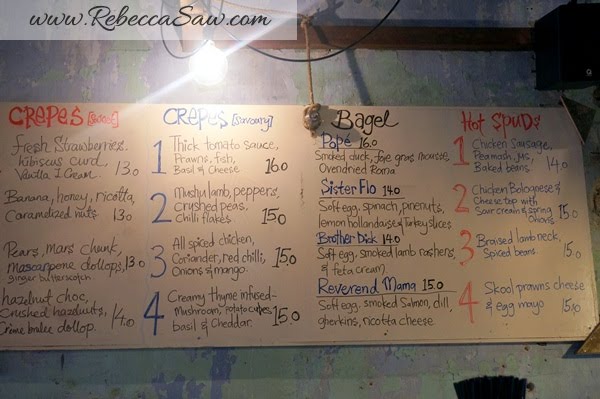 www.RebeccaSaw.com
CREPES [sweet]
fresh Strawberries.
hibiscus curd,
Vanilla I Cream. 13.0
Banana, honey, ricotta,
Caramelized nuts. 13.0
Pears, Mars chunk,
Mascarpone dollops, 13.0
ginger butterscotch
hazelnut choc,
Crushed hazelnuts, 14.0
Crème brulee dollop.
CREPES [savoury]
1 Thick tomato sauce,
Prawns, fish,
Basil & Cheese 16.0
2 Mushy lamb, peppers,
crushed peas.
Chilli flakes. 15.0
3 All spiced chicken,
Coriander, red chilli, 15.0
Onions & mango.
4 Creamy thyme infused-
Mushroom, potato cubes, 15.0
basil & Cheddar.
Bagel
Pope 16.0
Smoked duck, foie gras mousse,
Ovendried Roma
Sister Flo 14.0
Soft egg, spinach, pinenuts,
lemon hollandaise & Turkey slices
Brother Dick 14.0
Soft egg, smoked lamb rashers,
& feta cream
Reverend Mama 15.0
Soft egg, smoked Salmon, dill,
gherkins, ricotta cheese
Hot Spuds
1 Chicken Sausage,
Pea mash, jus, 14.0
Baked beans.
2 Chicken Bolognese &
Cheese top with
Sour cream & spring 15.0
Onions
3 Braised lamb neck, 15.0
Spiced beans.
4 Skool prawns cheese
& egg mayo 15.0